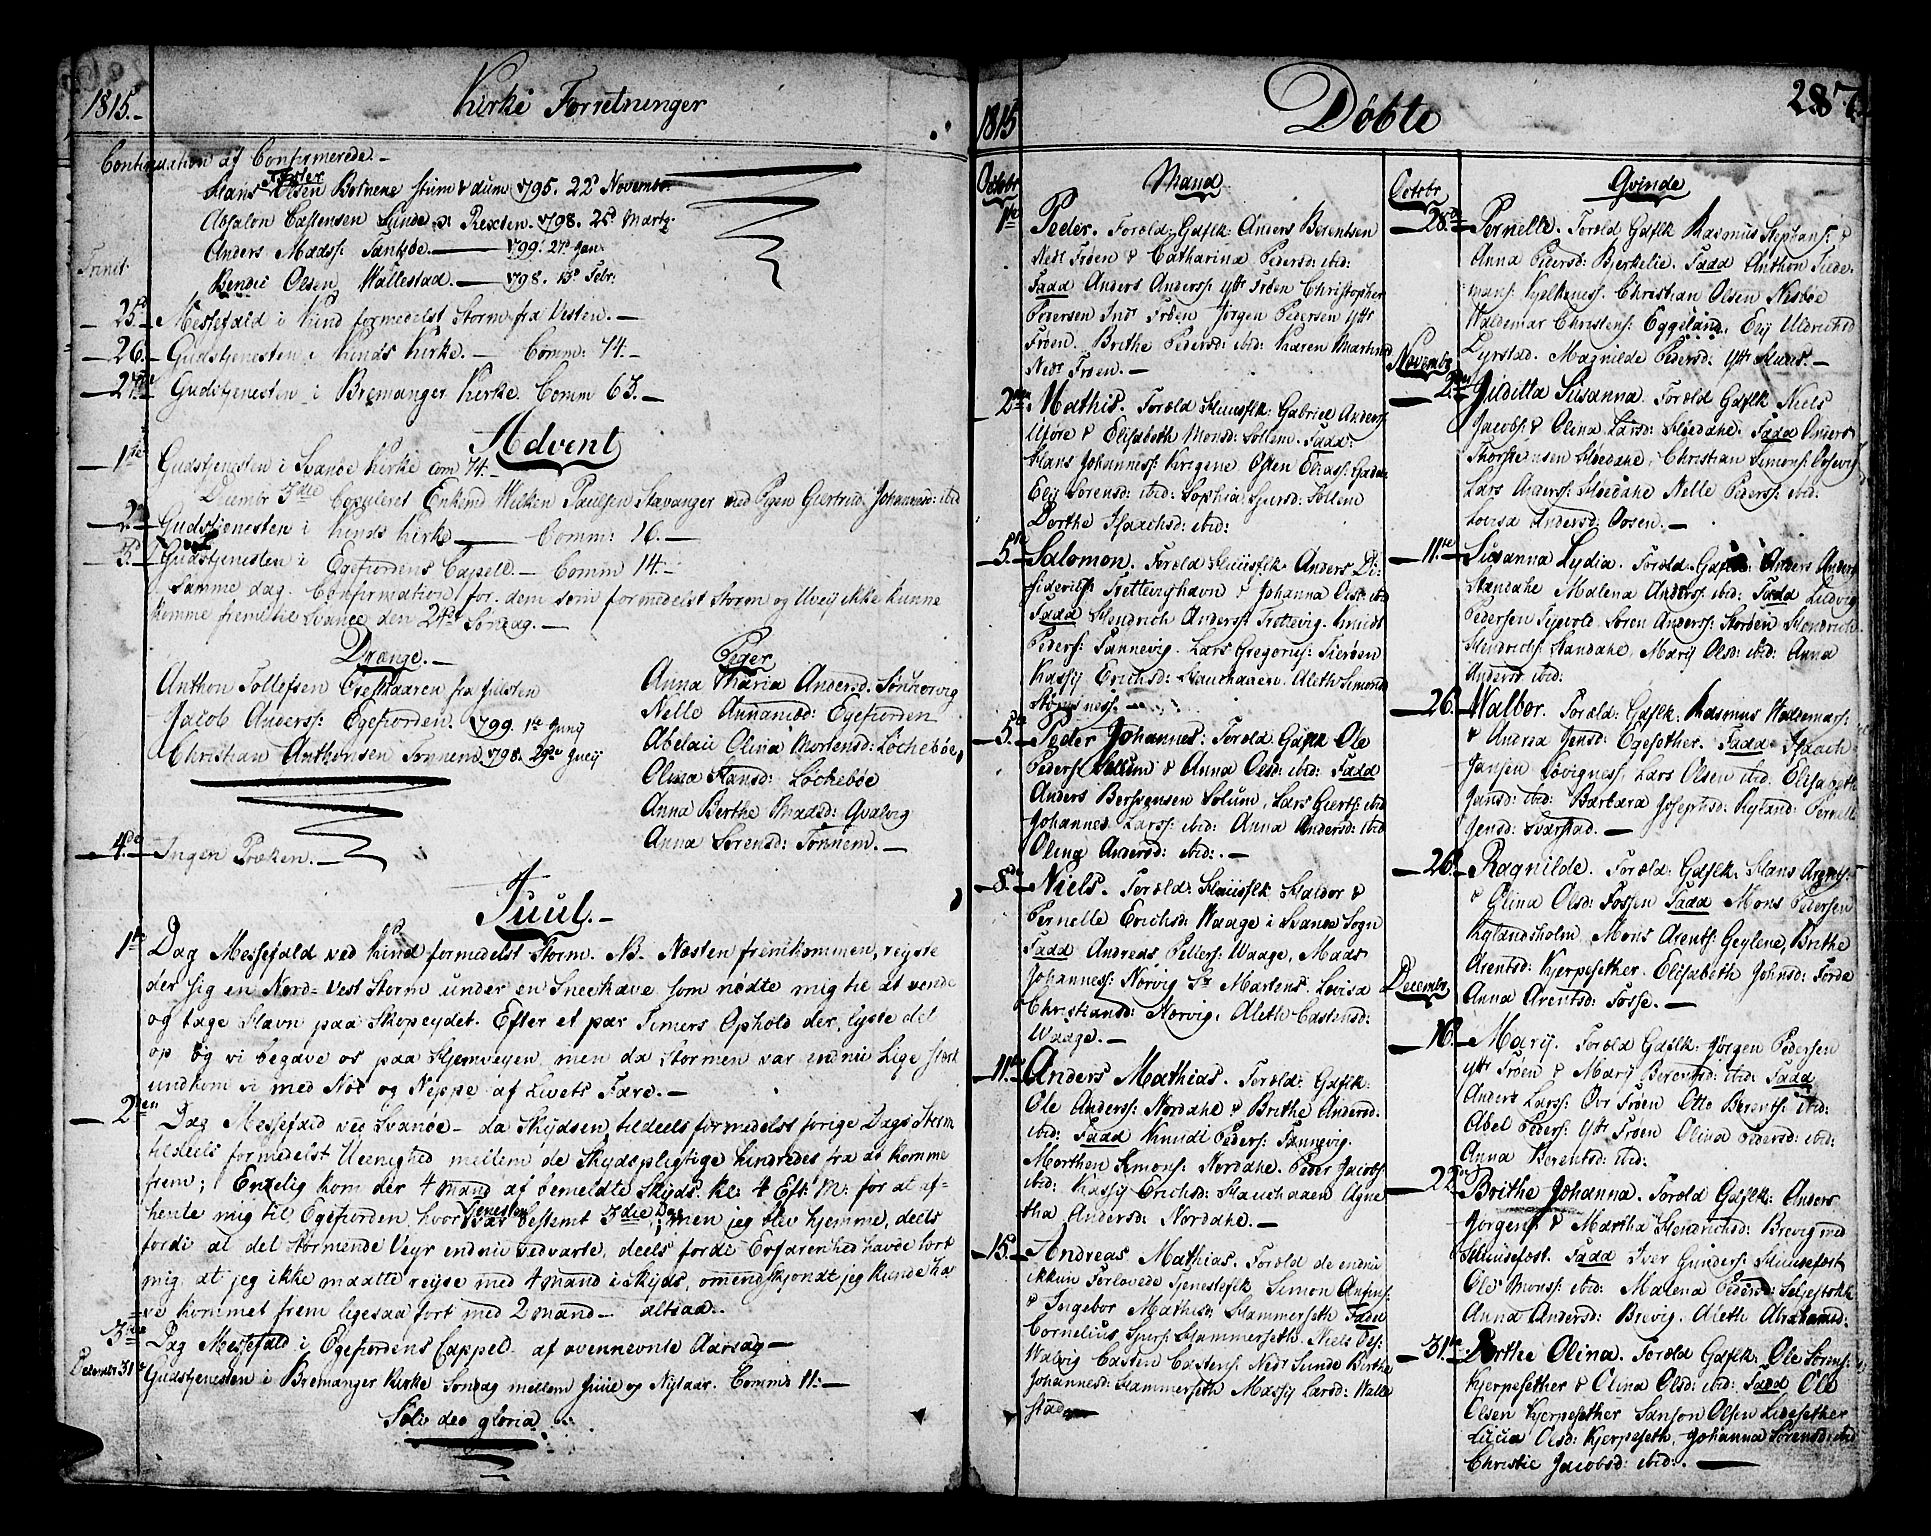 1815.
Kirke Forretninger
Continuation af Confirmerede.
Tyster
Hans Olsen Botnene stum & dum 1795. 22d Novembr.
Absalon Castensen Sunde v Rexten. 1798. 25d Marty
Anders Madss: Sankøe. 1799. 27d Jan:
Trinit:
Bendic Olsen Wallestad. 1798. 13d Febr:
25d Messefald i Kind formedelst Storm fra Vesten.
26. Gudstjenesten i Kinds Kirke. Comm: 74.
27de Gudstjenesten i Bremanger Kirke. Comm 63.
Advent
1ste Gudstjenesten i Svanøe Kirke com 74.
Decembr 3die Copuleret Enkemd Wilken Paulsen Stavanger med Pigen Giertrud Johannesd: ibid
2d Gudstjenesten i Kinds Kirke Comm: 16.
3d. Gudstjenesten i Egefiordens Capell. Comm 14.
Samme dag. Confirmation for dem som formedelst Storm og Uveyr ikke kunne
komme frem til Svanøe den 24d Søndag.
Drænge.
Anthon Tollefsen fra Julsten
Jacob Anderss: Egefiorden. 1799. 1ste Juny
Christian Anthonsen Tonnem 1798. 29de July
Piger
Anna Maria Andersd. Sønhovig
Nelle Annanïæd: Egefiorden
Abelaii Olina Mortensd: Løchebøe,
Olina Hansd: Løchebøe
Anna Berthe Madsd: Qvalvig
Anna Sørensd: Tonnem.
4de Ingen Præken.
Juul.
1ste Dag Messefald ved Kind formedelst Storm. NB. Næsten fremkommen, reyste
der sig en Nord-Vest Storm under en Sneekave som nødte mig til at vende
og tage Havn paa Skopeydet. Efter et par Timers Ophold der, lyste det
op og vi begave os paa Hjemveyen, men da Stormen var endnu lige stærk
undkom vi med Nød og Neppe af Livets Fare.
2den Dag Messefald ved Svanøe da Skydsen tildeels formedelst forige Dags Storm
tildeels formedelst Ueenighed mellem de Skydspligtige hindredes fra at komme
frem; Endelig kom der 4 mand af bemeldte Skyds. kl: 4 Eft: M: for at af-
hente mig til Egefiorden, hvor Tjenesten var bestemt 3die Dag, men jeg blev hjemme, deels
fordi at det stormende Veyr endnu vedvarte, deels fordi Erfarenhed havde lært
mig, at jeg ikke maatte reyse med 4 mand i Skyds, omendskjøndt jeg kunde ha-
ve kommet frem ligesaa fort med 2 mand altsaa.
3die Dag Messefald i Egefiordens Cappel. af ovennevnte Aarsag
Decembr 31te Gudstjenesten i Bremanger Kirke Søndag mellem Juul og Nytaar. Comm 11.
Soli deo gloria
1815
Døbte
287.
Octobr
Mand
1ste Peder. Foræld: Gdflk Anders Berentsen
Nedr Frøen & Catharina Pedersd: ibid:
Fadd Anders Anderss: yttr Frøen Christopher
Petersen Indr Frøen Jørgen Pedersen yttr
Frøen. Brithe Pedersd: ibid: Karen Martind
Nedr Frøen.
2den Mathis. Foræld Huusflk: Gabriel Anders:
Uføre & Elisabeth Monsd: Sollem. Fadd:
Hans Johanness: Osten Eliass:
Elij Sorensd: ibid: Sophia Siursd: Sollem
Dorthe Isaachsd: ibid:
5te Salomon. Foræld Huusflk Anders Di-
Trettevighavn & Johanna Olsd: ibid
Fadd Hendrich Anderss: Trettevig. Knudt
Peders: Sannevig. Lars Gregorius:
Kassij Erichsd: Hauchaaen. Aleth Simonsd
5te Peder Johannes. Foræld Gdflk Ole
Peders: Sollum & Anna Olsd: ibid: Fadd
Anders Solum. Lars Gierts: ibid
Johannes Larss: ibid: Anna Andersd: ibid
Olina Andersd: ibid:.
8de Niels. Foræld: Huusflk Haldor &
Pernelle Erichsd: Waage i Svanøe Sogn
Fadd Andreas Petters: Waage, Mads
Johanness: Norvig Martens. Lovisa
Christiansd: Norvig. Aleth Castensd:
Waage.
11te Anders Mathias. Foræld: Gdflk:
Ole Anderss: Nordahe & Brithe Andersd.
ibid: Fadd Knudt Peders: Sannevig.
Morthen Simons: Nordahe. Peder Jacobs:
ibid: Kassij Erichsd: Hauchaaen Agne
tha Andersd: Nordahe.
15. Andreas Mathias. Foræld de endnu
ikkun Forlovede Tjenestflk Simon
& Ingebor Mathisd: Hammerseth Fadd
Cornelius Siurs: Hammerseth. Niels Ols:
Walvig Casten Castens: Nedr Sunde Birthe
Johannesd: Hammerseth Massij Larsd: Walle
stad
Octobr
Qvinde
28de Pernelle. Foræld Gdflk Rasmus Stephans: &
Anna Pedersd: Bjerkelie. Fadd Anthon Tiede
mans: Kjelkenes. Christian Olsen Nesbøe
Waldemar Christens: Eggeland. Elij Uldrichsd
Lyrstad. Magnilde Pedersd: yttr Haus.
Novembr
2den Juditta Susanna. Foræld Gdflk Niels
Jacobs: & Olina Larsd: Høedahe: Fadd Anders
Thorstensen Høedahe, Christian Simons: Osevig
Lars Anders: Høedahe Nelle Peders: ibid:
Lovisa Andersd: Oosen.
11te Susanna Lydia. Foræld Gdflk: Anders Anders
Standahe Malena Anders: ibid: Fadd Ludvig
Pedersen Sey­vold. Soren Anders: Storøen Hendrich
Hendrichs: Standahe. Marij Olsd: ibid: Anna
Andersd: ibid:
26. Walbor. Foræld: Gdflk: Rasmus Waldemars:
& Andrea Jensd: Egesether. Fadd Isaach
Jansen Løvignes: Lars Olsen ibid: Elisabeth
Jansd: ibid: Barbara Josephsd: Rylland: Pernelle
Jensd: Sværstad.
26. Ragnilde. Foræld: Gdflk. Hans Arents:
& Olina Olsd: Fossen Fadd Mons Pedersen
Rylandsholm. Mons Arents: Geylene, Brithe
Arentsd: Kjerpesether. Elisabeth Johnsd: Førde
Anna Arentsd: Fosse.
Decembr
16. Marij. Foræld Gdflk: Jørgen Pedersen
yttr Frøen & Marij Berentsd: ibid: Fadd
Anders Larss: Ovr Frøen Otto Berents: ibid:
Abel Peders: yttr Frøen Olina Pedersd: ibid:
Anna Berentsd: ibid:
22de Brithe Johanna. Foræld Gdflk: Anders
Jorgens: & Martha Hendrichsd: Brevig med
Fadd Iver Gunders:
Ole Mons: ibid: Malena Pedersd:
Anna Andersd: Brevig. Aleth Abrahamsd:
31te Dorthe Olina. Foræld Gdflk: Ole Sørens:
Kjerpesether & Olina Olsd: ibid: Fadd Ole
Olsen Kjerpesether Sanson Olsen Lidesether
Lucia Olsd: Kjerpeseth. Johanna Sørensd: ibid
Christie Jacobsd: ibid:.